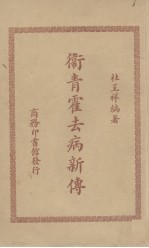 杜呈祥編著
衛青霍去病新傳
商務印書館發行